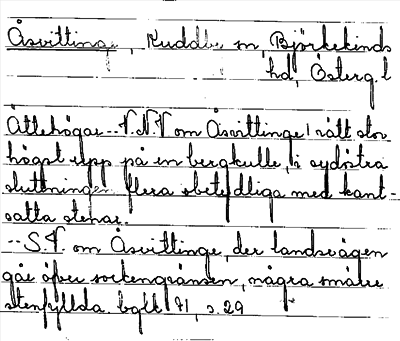 Åsvittinge, Kuddby sn, Björkekinds
hd, Österg. l
Ättehögar -- V.N.V om Åsvittinge 1 rätt stor
högst upp på en bergkulle, i sydöstra
sluttningen flera obetydliga med kant-
satta stenar.
-- S.V. om Åsvittinge, der landsvägen
går öfver sockengränsen, några smärre
stenfyllda. bgll 71, s. 29